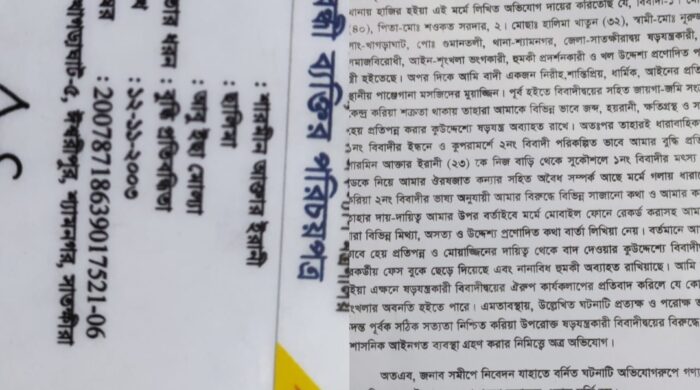 ন্ধী ব্যক্তির পরিচয়পত্র
: শারমীন আক্তার ইরানী
: হালিমা
: আবু ইছা মোল্যা
তার ধরন : বুদ্ধি প্রতিবন্ধিতা
: ১২-১১-২০০৩
: 20078718639017521-06
ঈশ্বরীপুর, শ্যামনগর, সাতক্ষীরা
থানায় হাজির হইয়া এই মর্মে লিখিত অভিযোগ দায়ের করিতেছি যে,
(৪০), পিতা-মোঃ শওকত সরদার, ২। মোছাঃ হালিমা খাতুন (৩২), স্বামী-মোঃ
সাং-খাগড়াঘাট, পোঃ গুমানতলী, থানা-শ্যামনগর, জেলা-সাতক্ষীরাদ্বয় ষড়যন্ত্রকারী,
সমাজবিরোধী, আইন-শৃংখলা ভংগকারী, হুমকী প্রদর্শনকারী ও খল উদ্দেশ্য প্রণোদিত
হইতেছে। অপর দিকে আমি বাদী একজন নিরীহ, শান্তিপ্রিয়, ধার্মিক, আইনের প্রতি
স্থানীয় পাঞ্জেগানা মসজিদের মুয়াজ্জিন। পূর্ব হইতে বিবাদীদ্বয়ের সহিত জায়গা-জমি
কেন্দ্র করিয়া শত্রুতা থাকায় তাহারা আমাকে বিভিন্ন ভাবে জব্দ, হয়রানী, ক্ষতিগ্রস্থ ও
হেয় প্রতিপন্ন করার কুউদ্দেশ্যে ষড়যন্ত্র অব্যাহত রাখে। অতঃপর তাহারই ধারাবাহিক
১নং বিবাদীর ইন্ধনে ও কুপরামর্শে ২নং বিবাদী পরিকল্পিত ভাবে আমার বুদ্ধি প্রতি
শারমিন আক্তার ইরানী (২৩) কে নিজ বাড়ি থেকে সুকৌশলে ১নং বিবাদীর মৎস্য
নিয়ে আমার ঔরষজাত কন্যার সহিত অবৈধ সম্পর্ক আছে মর্মে গলায় ধারা
করিয়া ২নং বিবাদীর ভাষ্য অনুযায়ী আমার বিরুদ্ধে বিভিন্ন সাজানো কথা ও আমার
তাহার দায়-দায়িত্ব আমার উপর বর্তাইবে মর্মে মোবাইল ফোনে রেকর্ড করাসহ আমার
দ্বারা বিভিন্ন মিথ্যা, অসত্য ও উদ্দেশ্য প্রণোদিত কথা বার্তা লিখিয়া নেয়। বর্তমানে
ভাবে হেয় প্রতিপন্ন ও মোয়াজ্জিনের দায়িত্ব থেকে বাদ দেওয়ার কুউদ্দেশ্যে বিবাদী
ফেস বুকে ছেড়ে দিয়েছে এবং নানাবিধ হুমকী অব্যাহত রাখিয়াছে। আমি
হইয়া এক্ষনে ষড়যন্ত্রকারী বিবাদীদ্বয়ের ঐরুপ কার্যকলাপের প্রতিবাদ করিলে যে
অবনতি হইতে পারে। এমতাবস্থায়, উল্লেখিত ঘটনাটি প্রত্যক্ষ ও পরোক্ষ
পূর্বক সঠিক সত্যতা নিশ্চিত করিয়া উপরোক্ত ষড়যন্ত্রকারী বিবাদীদ্বয়ের বিরুদ্ধে
আইনগত ব্যবস্থা গ্রহণ করার নিমিত্তে অত্র অভিযোগ।
অতএব, জনাব সমীপে নিবেদন যাহাতে বর্নিত ঘটনাটি অভিযোগরুপে গণ্য